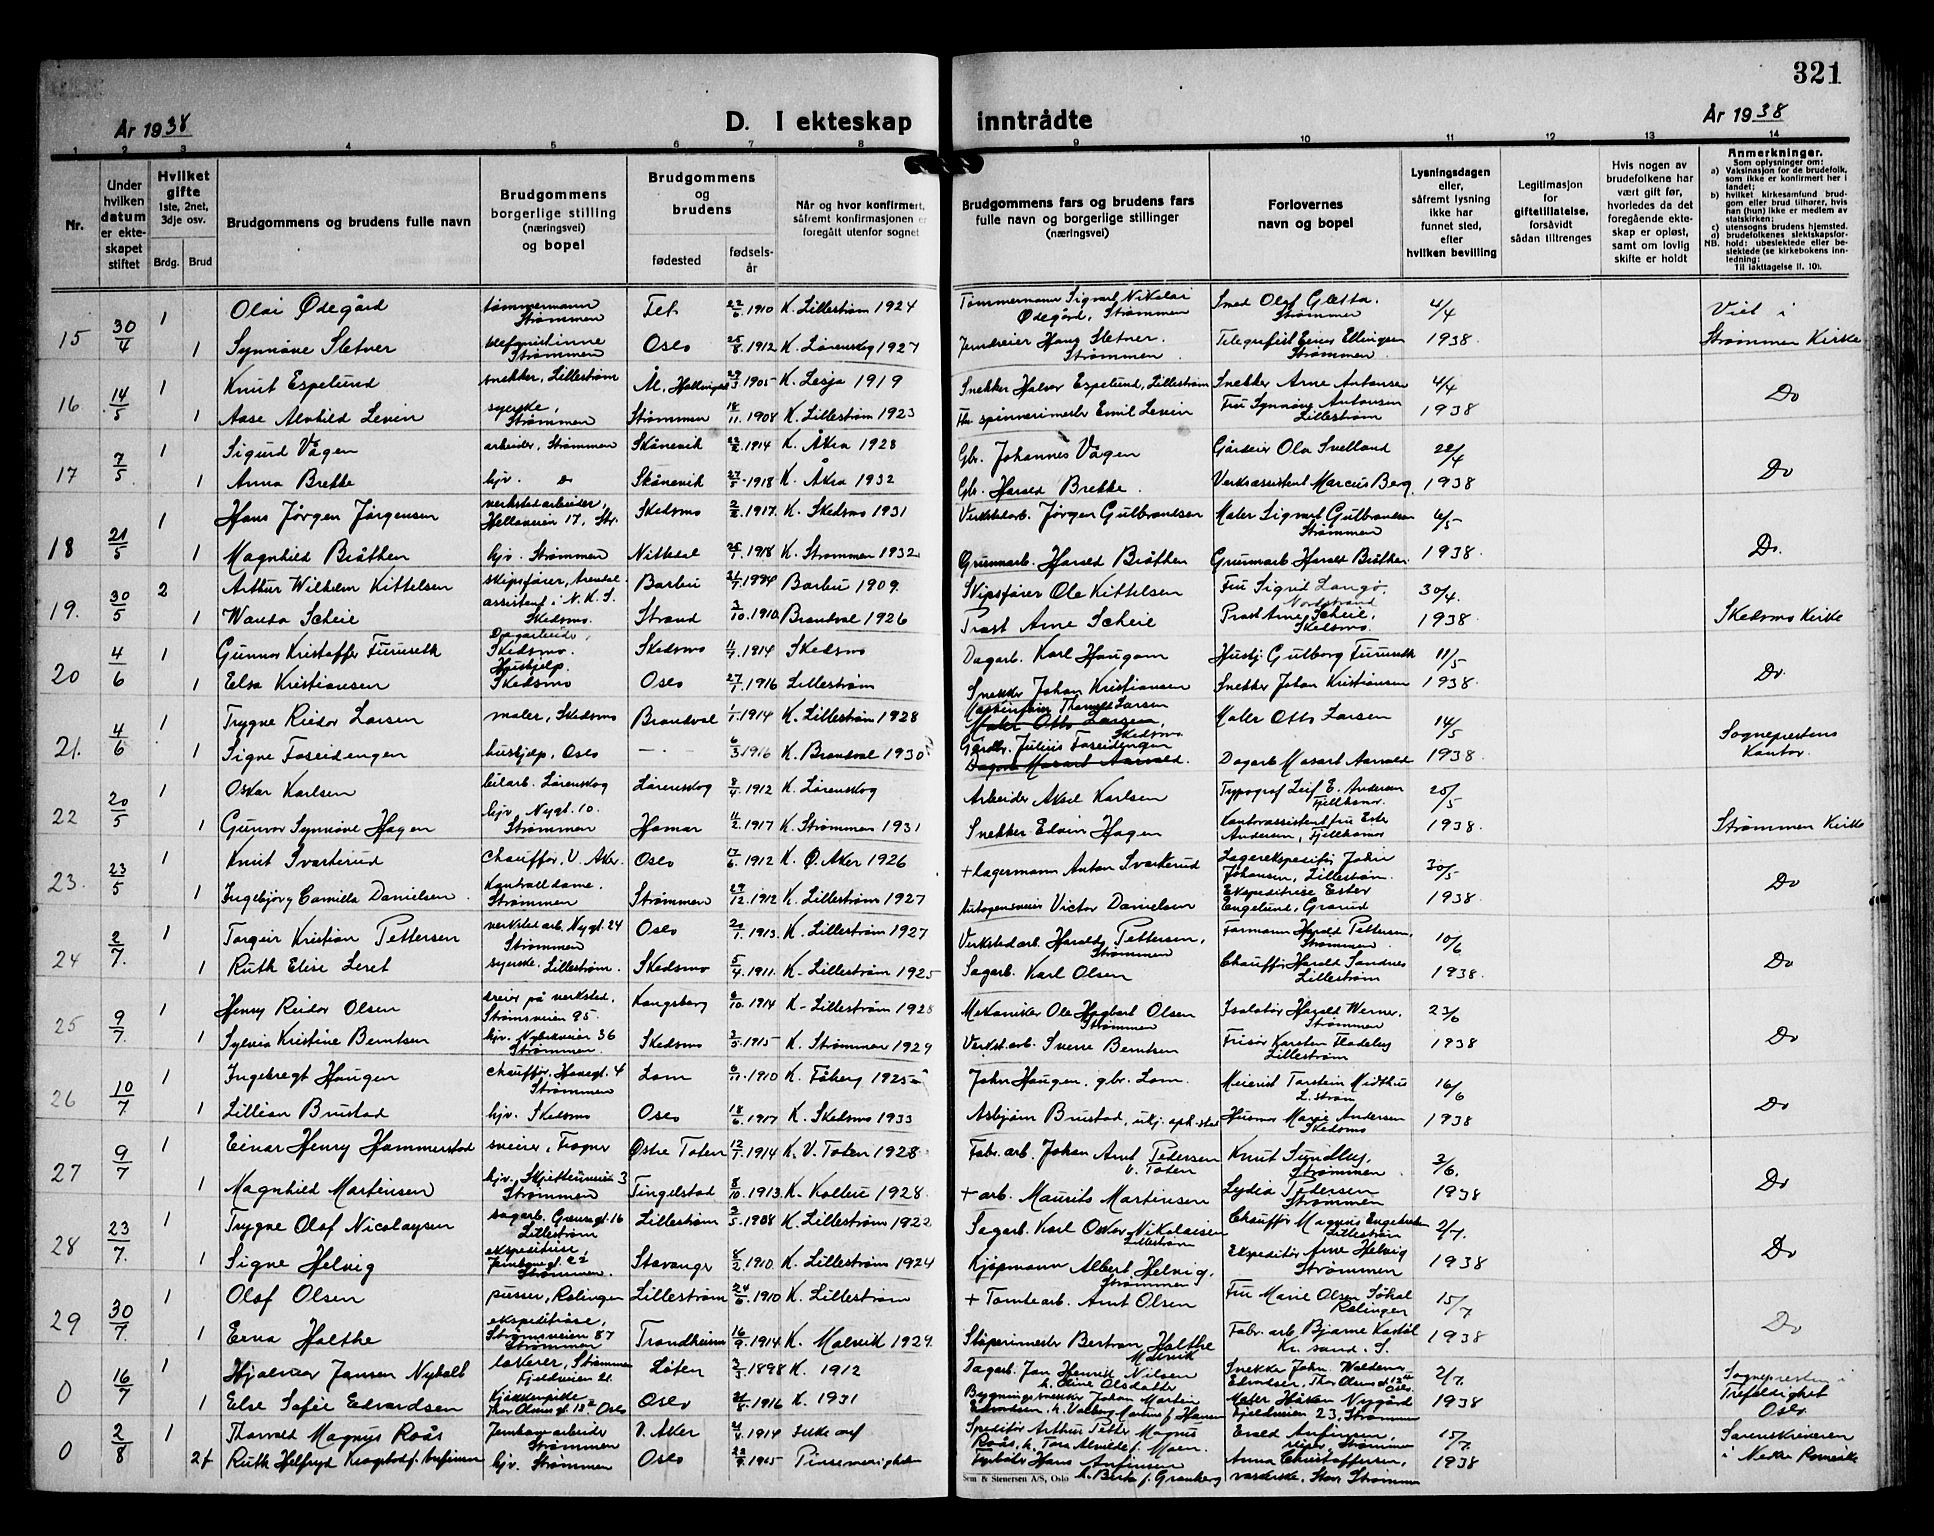 321
År 1938
D. I ekteskap inntrådte
År 1938
1 2 3 4 5 6 7 8 9 10 11 12 13 14
Nr.
Under hvilken datum er ekteskapet stiftet
Hvilket gifte 1ste, 2net, 3dje osv.
Brdg. Brud
Brudgommens og brudens fulle navn
Brudgommens borgerlige stilling (næringsvei) og bopel
Brudgommens og brudens
fødested
fødselsår
Når og hvor konfirmert, såfremt konfirmasjonen er foregått utenfor sognet
Brudgommens fars og brudens fars fulle navn og borgerlige stillinger (næringsvei)
Forlovernes navn og bopel
Lysningsdagen eller, såfremt lysning ikke har funnet sted, efter hvilken bevilling
Legitimasjon for giftetillatelse, forsåvidt sådan tiltrenges
Hvis nogen av brudefolkene har vært gift før, hvorledes da det foregående ekteskap er opløst, samt om lovlig skifte er holdt
Anmerkninger.
Som oplysninger om:
a) Vaksinasjon for de brudefolk, som ikke er konfirmert her i landet;
b) hvilket kirkesamfund brudgom eller brud tilhører, hvis han (hun) ikke er medlem av statskirken;
c) utensogns brudens hjemsted.
d) brudefolkenes slektskapsforhold: ubeslektede eller beslektede (se kirkebokens innledning:
NB.
Til iakttagelse II. 10).
15 30/4 1 Olai Ødegård tømmermann Strømmen Fet 22/6 1910 K. Lillestrøm 1924 Tømmermann Sigvart Nikolai Ødegård, Strømmen Smed Olaf Glætta. Strømmen 4/4 Viet i
1 Synnøve Sletner Strømmen Oslo 25/8 1912 K. Lørenskog 1927 Hans Sletner. Strømmen Telegrafist Einar Ellingsen Strømmen 1938 Strømmen Kirke
16 14/5 1 Knut Espelund snekker, Lillestrøm Ål, 29/3 1905 K. Lesja 1919 Snekker Halvor Espelund, Lillestrøm Snekker Arne Antonsen 4/4 Do
1 Aase Alvhild Levin syerske, Strømmen Strømmen 18/11 1908 K. Lillestrøm 1923 spinnerimester Emil Levin Fru Synnøve Antonsen Lillestrøm 1938
17 7/5 1 Sigurd Vågen arbeider, Strømmen Skånevik 1914 K. Åkra 1928 Gbr. Johannes Vågen Ola Svelland 22/4 Do
1 Anna Brekke hjv. do Skånevik 27/5 1918 K. Åkra 1932 Gbr. Harald Brekke. Verksassistent Marcus Berg 1938
18 21/5 1 Hans Jørgen Jørgensen verkstedarbeider, 17, Str. Skedsmo 1917 K. Skedsmo 1931 Verkstedarb. Jørgen Gulbrandsen Maler Sigvart Gulbrandsen Strømmen 6/5 Do.
1 Magnhild Bråthen hjv. Strømmen Nittedal 1918 K. Strømmen 1932 Grusmarb. Harald Bråthen Harald Bråthen 1938
19. 30/5 2 Arthur Wilhelm Kittelsen skipsfører, Arendal Barbu 21/7 Barbu 1909. Skipsfører Ole Kittelsen Fru Sigrid Langø. Nordstrand 30/4. Skedsmo Kirke
1 Wanda Scheie assistent i N.K.S. Skedsmo. Strand 3/10 1910 Brandval 1926 Prost Arne Scheie Prost Arne Scheie, Skedsmo. 1938
20 4/6 1 Gunnar Kristoffer Furureth Dagarbeider, Skedsmo. Skedsmo 11/7 1914 Skedsmo Dagarb. Karl Haugom Gulborg Furureth 11/5 Do.
1 Elsa Kristiansen Hushjelp. Skedsmo Oslo 27/1 1916 Lillestrøm Snekker Johan Kristiansen Snekker Johan Kristiansen 1938.
21. 4/6 1 Trygve Reidar Larsen maler, Skedsmo Brandval 1/1 1914 K. Lillestrøm 1928 Larsen Maler Otto Larsen, Skedsmo Maler Otto Larsen 14/5 Sogneprestens Kantor.
1 Signe Foseidengen hushjelp, Oslo — 6/3 1916 K. Brandval 1930 Gårdbr. Julius Foseidengen Dagarb Masart Aarvold. Dagarb Masart Aarvold 1938
22 20/5 1 Oskar Karlsen Lørenskog Lørenskog 8/4 1912 K. Lørenskog Arbeider Aksel Karlsen Typograf Leif E. Andersen Fjellhamar. 25/5 Strømmen Kirke
1 Gunvor Synnøve Hagen hjv. Nygt. 10. Strømmen Hamar 11/2 1917 K. Strømmen 1931 Snekker Edvin Hagen Kontorassistent fru Ester Andersen, Fjellhamar 1938.
23. 23/5 1 Knut Svarterud Chauffør, V. Aker. Oslo 17/6 1912 K. Ø. Aker 1926 + lagermann Anton Svarterud Lagerekspeditør John Johansen, Lillestrøm. 30/5 Do
1 Ingebjørg Camilla Danielsen. Kontroll dame. Strømmen Strømmen 29/12 1912 K. Lillestrøm 1927 Autogensveiser Victor Danielsen Ekspeditrise Ester Engelund, Grorud 1938.
24 2/7. 1 Torgeir Kristian Pettersen verksted arb. Nygt. 24 Strømmen Oslo 20/1 1913. K. Lillestrøm 1927 Verksted arb. Harald Pettersen, Strømmen Formann Harald Pettersen, Strømmen 10/6 Do
1 Ruth Elise Leret syerske. Lillestrøm. Skedsmo 5/4 1911. K. Lillestrøm 1925 Sagarb. Karl Olsen Chauffør Harald Sandnes Lillestrøm 1938.
25 9/7. 1 Henry Reidar Olsen dreier på verksted, Strømsveien 95. Kongsberg 1914 K. Lillestrøm 1928 Mekaniker Ole Hagbart Olsen Strømmen Isolatør Harald Werner. Strømmen 23/6 Do
1 Sylvia Kristine Berntsen hjv. 36 Strømmen. Skedsmo 1915 K. Strømmen 1929 Verkst. arb. Sverre Berntsen Frisør Karsten Fladeby Lillestrøm 1938
26 10/7 1 Ingebregt Haugen Chauffør, 4 Strømmen Lom 1910 K. Fåberg 1925 John Haugen, gbr. Lom. Meierist Torstein Midthus L.strøm 16/6 Do
1 Lillian Brustad hjv. Skedsmo Oslo 18/6 1917 K. Skedsmo 1933 Asbjørn Brustad, Marie Andersen Skedsmo 1938
27 9/7 1 Einar Henry Hammerstad sveier, Frogner Østre Toten 12/7 1914 K. V. Toten 1928 Fabr. arb. Johan Arnt Pedersen V. Toten Knut Sundby, Strømmen. 3/6. Do
1 Magnhild Martinsen hjv. 3 Strømmen Tingelstad 8/10 1913. K. Kolbu 1928. + arb. Maurits Martinsen Lydia Pedersen Strømmen 1938
28 23/7. 1 Trygve Olaf Nicolaysen sagarb. 16 Lillestrøm Lillestrøm 3/5 1908 K. Lillestrøm 1922 Sagarb. Karl Oskar Nikolaisen Lillestrøm Chauffør Magnus Engebretsen Lillestrøm 2/7. Do
1 Signe Helvig ekspeditrise, 22 Strømmen. Stavanger 8/2 1910. K. Lillestrøm 1924 Kjøpmann Albert Helvig. Strømmen Ekspeditør Arne Helvig Strømmen 1938
29 30/7. 1 Olaf Olsen pusser, Rælingen Lillestrøm 24/6 1910 K. Lillestrøm + Tomtearb. Arnt Olsen Fru Marie Olsen Rælingen 15/7 Do
1 Erna Halthe ekspeditrise, Strømsveien 87 Strømmen Trondheim 16/9 1914 K. Malvik 1929. Støperimester Bertran Halthe Malvik Fabr. arb Bjarne Kr. sand. S. 1938
0 16/7 1 Hjalmar Jansen Nyholt lakerer, Strømmen Fjeldveien 21. Løten 3/3 1898 K. 1912 Dagarb. Jan Henrik Nilsen h. Oline Olsdatter Snekker John Waldemar Edvardsen, Thor Olsens gt 12 Oslo. 2/7. Sognepresten i Trefoldighet Oslo
1 Else Sofie Edvardsen Kjøkkenpike Thor Olsens gt. 12 Oslo Oslo 1916 K. 1931 Bygningssnekker Johan Martin Edvardsen h. Valborg f. Hansen Maler Håkon Nygård Fjeldveien 23, Strømmen 1938
0 2/8 1 Thorvald Magnus Roås Jernbanearbeider Strømmen V. Aker 1914 Ikke Speditør Arthur Petter Magnus Roås, h. Alvilde f. Moen. Evald Anfinsen, Strømmen 15/7. Sorenskriveren
2 f Ruth Helfryd Krogstad f. Anfinsen hjv. Strømmen Oslo Pinsemenigheten Hans Anfinsen h. Berta f. Granberg Anna Christoffersen, Strømmen 1938 i Nedre Romerike
Sem & Stenersen A/S, Oslo